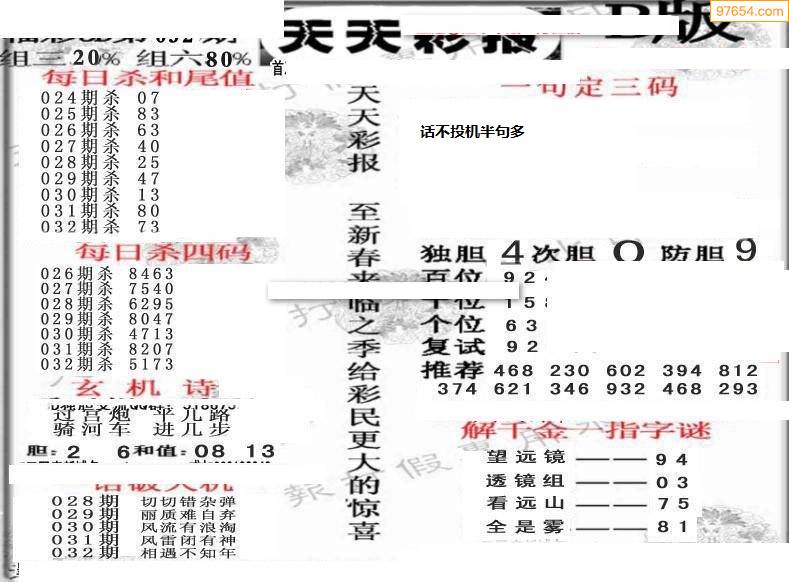 97654.com
天天彩报
B版
组三20% 组六80%
每日杀和尾值
024期杀 07
025期杀 83
026期杀 63
027期杀 40
028期杀 25
029期杀 47
030期杀 13
031期杀 80
032期杀 73
每日杀四码
026期杀 8463
027期杀 7540
028期杀 6295
029期杀 8047
030期杀 4713
031期杀 8207
032期杀 5173
玄机诗
过宫炮 平九路
骑河车 进几步
胆:2 6和值:08 13
话破天机
028期 切切错杂弹
029期 丽质难自弃
030期 风流有浪淘
031期 风雷闭有神
032期 相遇不知年
天天彩报 至新春来临之季给彩民更大的惊喜
一句定三码
话不投机半句多
独胆4次胆0防胆9
百位 92
十位 15
个位 63
复试 92
推荐 468 230 602 394 812
374 621 346 932 468 293
解千金一指字谜
望远镜———94
透镜组———03
看远山———75
全是雾———81